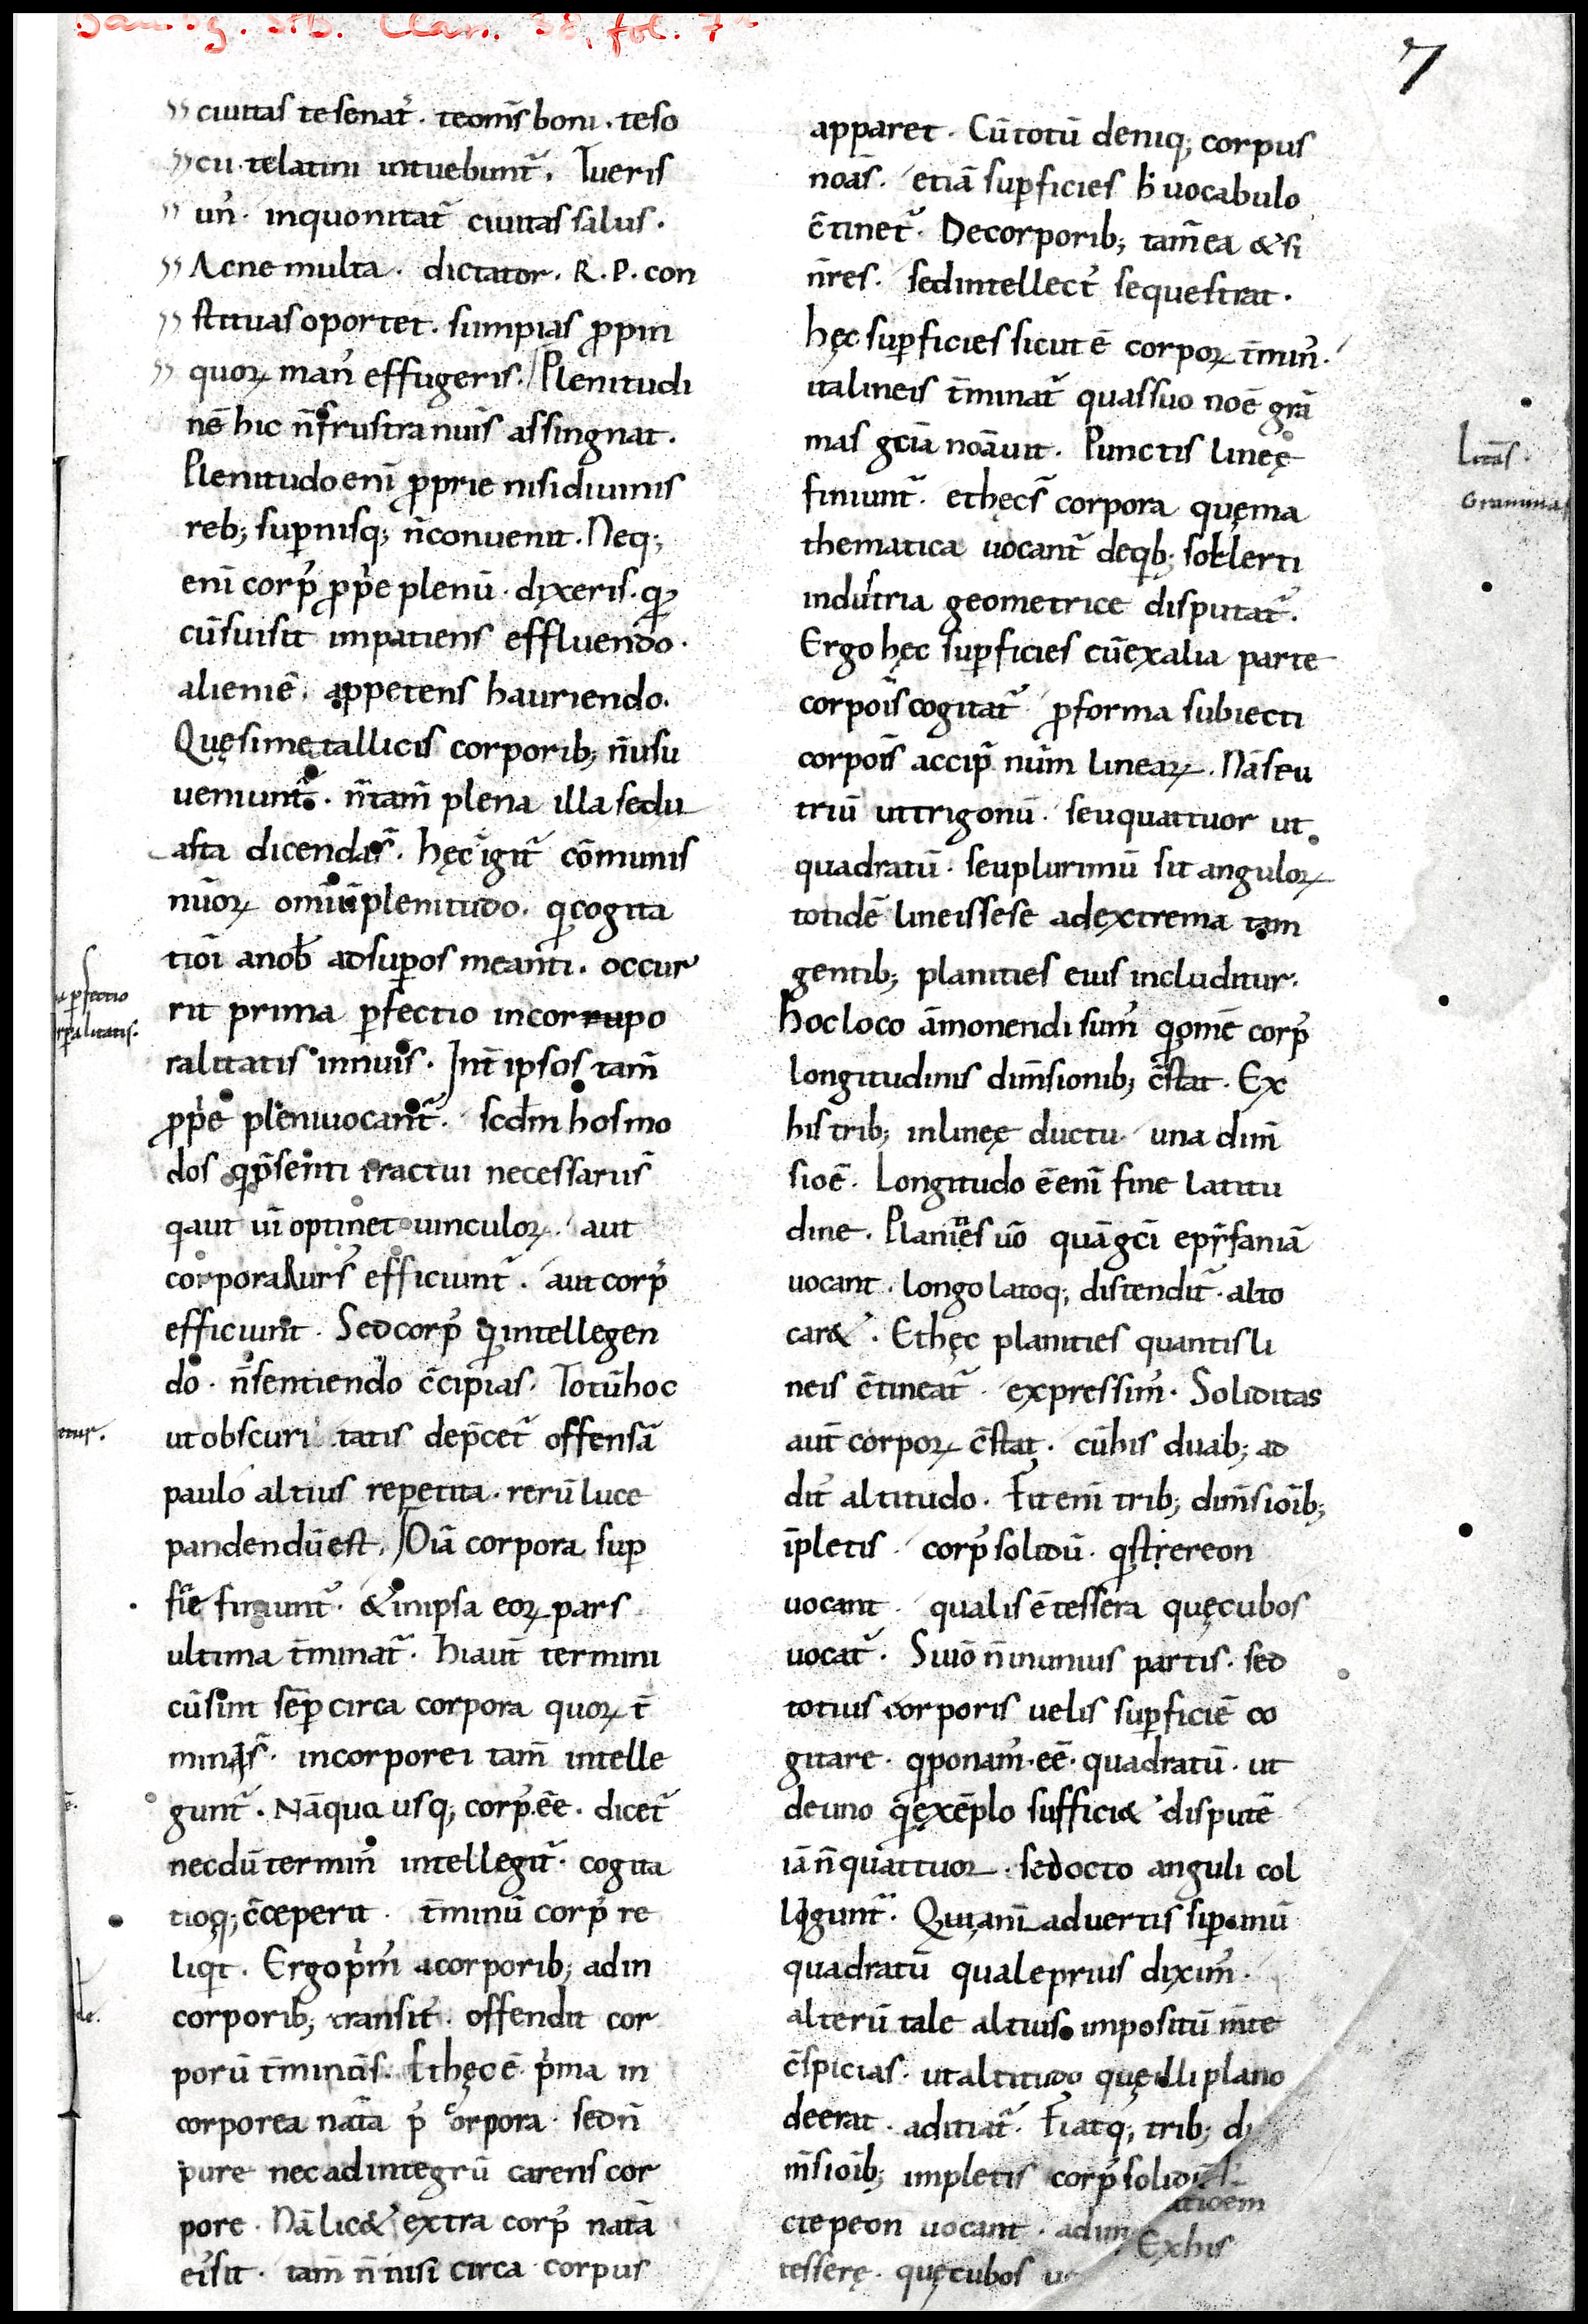 Bamb̄g. StB. Class. 38, fol. 7r
7
ciuitas te senat᷒. te om̄s boni. te so
cii. te latini intuebunt᷑. Tu eris
un᷒. in quo nitat᷑ ciuitas salus.
Ac ne multa. dictator. R. P. con
stituas oportet. si impias ꝓpin
quoꝝ man᷒ effugeris. Plenitudi
nē hic n̄ frustra nu͞is assingnat.
Plenitudo eni͞ ꝓprie nisi diuinis
reb; suꝑnisq; n̄ conuenit. Neq;
eni͞ corp᷒ ꝓpͥe plenū. dixeris. qđ
cū sui sit impatiens effluendo.
alieni ē. appetens hauriendo.
Quę si metallicis corporib; n̄ usu
ueniunt᷑. n̄ tam̄ plena illa sed u
asta dicenda s͞. hęc igit᷑ cōmunis
nūoꝝ omiū plenitudo. qđ cogita
tioi͞ a nob̄ ad suꝑos meanti. occur
rit prima ꝑfectio incorrupo
ralitatis in nu͞is. Int̄ ipsos tam̄
ꝓpͥe pleni uocant᷑. scd̄m hos mo
dos q p̄senti tractui necessarii s͞
q aut ui͞ optinet uinculoꝝ. aut
corpora rurs᷒ efficiunt᷑. aut corp᷒
efficiunt. Sed corp᷒ qđ intellegen
do. n̄ sentiendo c̄cipias. Totū hoc
ut obscuritatis dep̄cet᷑ offensā
paulo altius repetita. rerū luce
pandendū est. Oīa corpora suꝑ
fi͞e finiunt᷑. & in ipsa eoꝝ pars
ultima t̄minat᷑. Hi aut̄ termini
cū sint sēꝑ circa corpora quoꝝ t̄
mini s͞. incorporei tam̄ intelle
gunt᷑. Nā quo usq; corp᷒ ēe. dicet᷑
necdū termin᷒ intellegit᷑. cogita
tio q; c̄ceperit. t̄minū corp᷒ re
liqͥt. Ergo pͥm᷒ a corporib; ad in
corporib; transit᷒. offendit cor
porū t̄mino͞s. Et hęc ē pͥma in
corporea nat̄a p᷒ corpora. sed n̄
pure nec ad integrū carens cor
pore. Nā lic& extra corp᷒ nat̄a
ei᷒ sit. tam̄ n̄ nisi circa corpus
apparet. Cū totū deniq; corpus
noās. etiā suꝑficies h̄ uocabulo
c̄tinet᷑. De corporib; tam̄ ea & si
n̄ res. sed intellect᷒ sequestrat.
hęc suꝑficies sicut ē corpoꝝ t̄min᷒.
ita lineis t̄minat᷑ quas suo noē grā
mas gcīa noāuit. Punctis lineę
finiunt᷑. et hęc s͞ corpora quę ma
thematica uocant᷑ de qͥb; sollerti
industria geometrice disputat᷑.
Ergo hęc suꝑficies cū ex alia parte
corpoi͞s cogitat᷑ ꝓ forma subiecti
corpoi͞s accip̄ nūm lineaꝝ. Nā seu
triū ut trigonū. seu quattuor ut
quadratū. seu plurimū sit anguloꝝ
totidē lineis sese ad extrema tan
gentib; planities eius includitur.
hoc loco āmonendi sum᷒ qđ om̄e corp᷒
longitudinis dim̄sionib; c̄stat. Ex
his trib; in lineę ductu una dim̄
sio ē. Longitudo ē eni͞ sine latitu
dine. Planities uō quā gci͞ epyfaniā
uocant. longo latoq; distendit᷑. alto
car&. Et hęc planities quantis li
neis c̄tineat᷑ expressim᷒. Soliditas
aut̄ corpoꝝ c̄stat. cū his duab; ad
dit᷒ altitudo. Fit eni͞ trib; dim̄sioi͞b;
i͞pletis. corp᷒ solidū. qđ stereon
uocant. qualis ē tessera quę cubos
uocat᷑. Si uō n̄ in unius partis. sed
totius corporis uelis suꝑficiē co
gitare. qđ ponam᷒. ēe. quadratū. ut
de uno qđ exēplo suffici& disputē
iā n̄ quattuor. sed octo anguli col
ligunt᷑. Qui animaduertis si suꝑ unū
quadratū quale prius dixim᷒.
alterū tale altius impositū m̄te
c̄spicias. ut altitudo quę illi plano
deerat. aditiat᷑. Fiatq; trib; di
m̄sioi͞b; impletis corp᷒ solidū
ctepeon uocant. ad im
atioēm
Ex his
tesserę. quę cubos u
Litās.
Gramma
a ꝑfectio
rꝑalitatis.